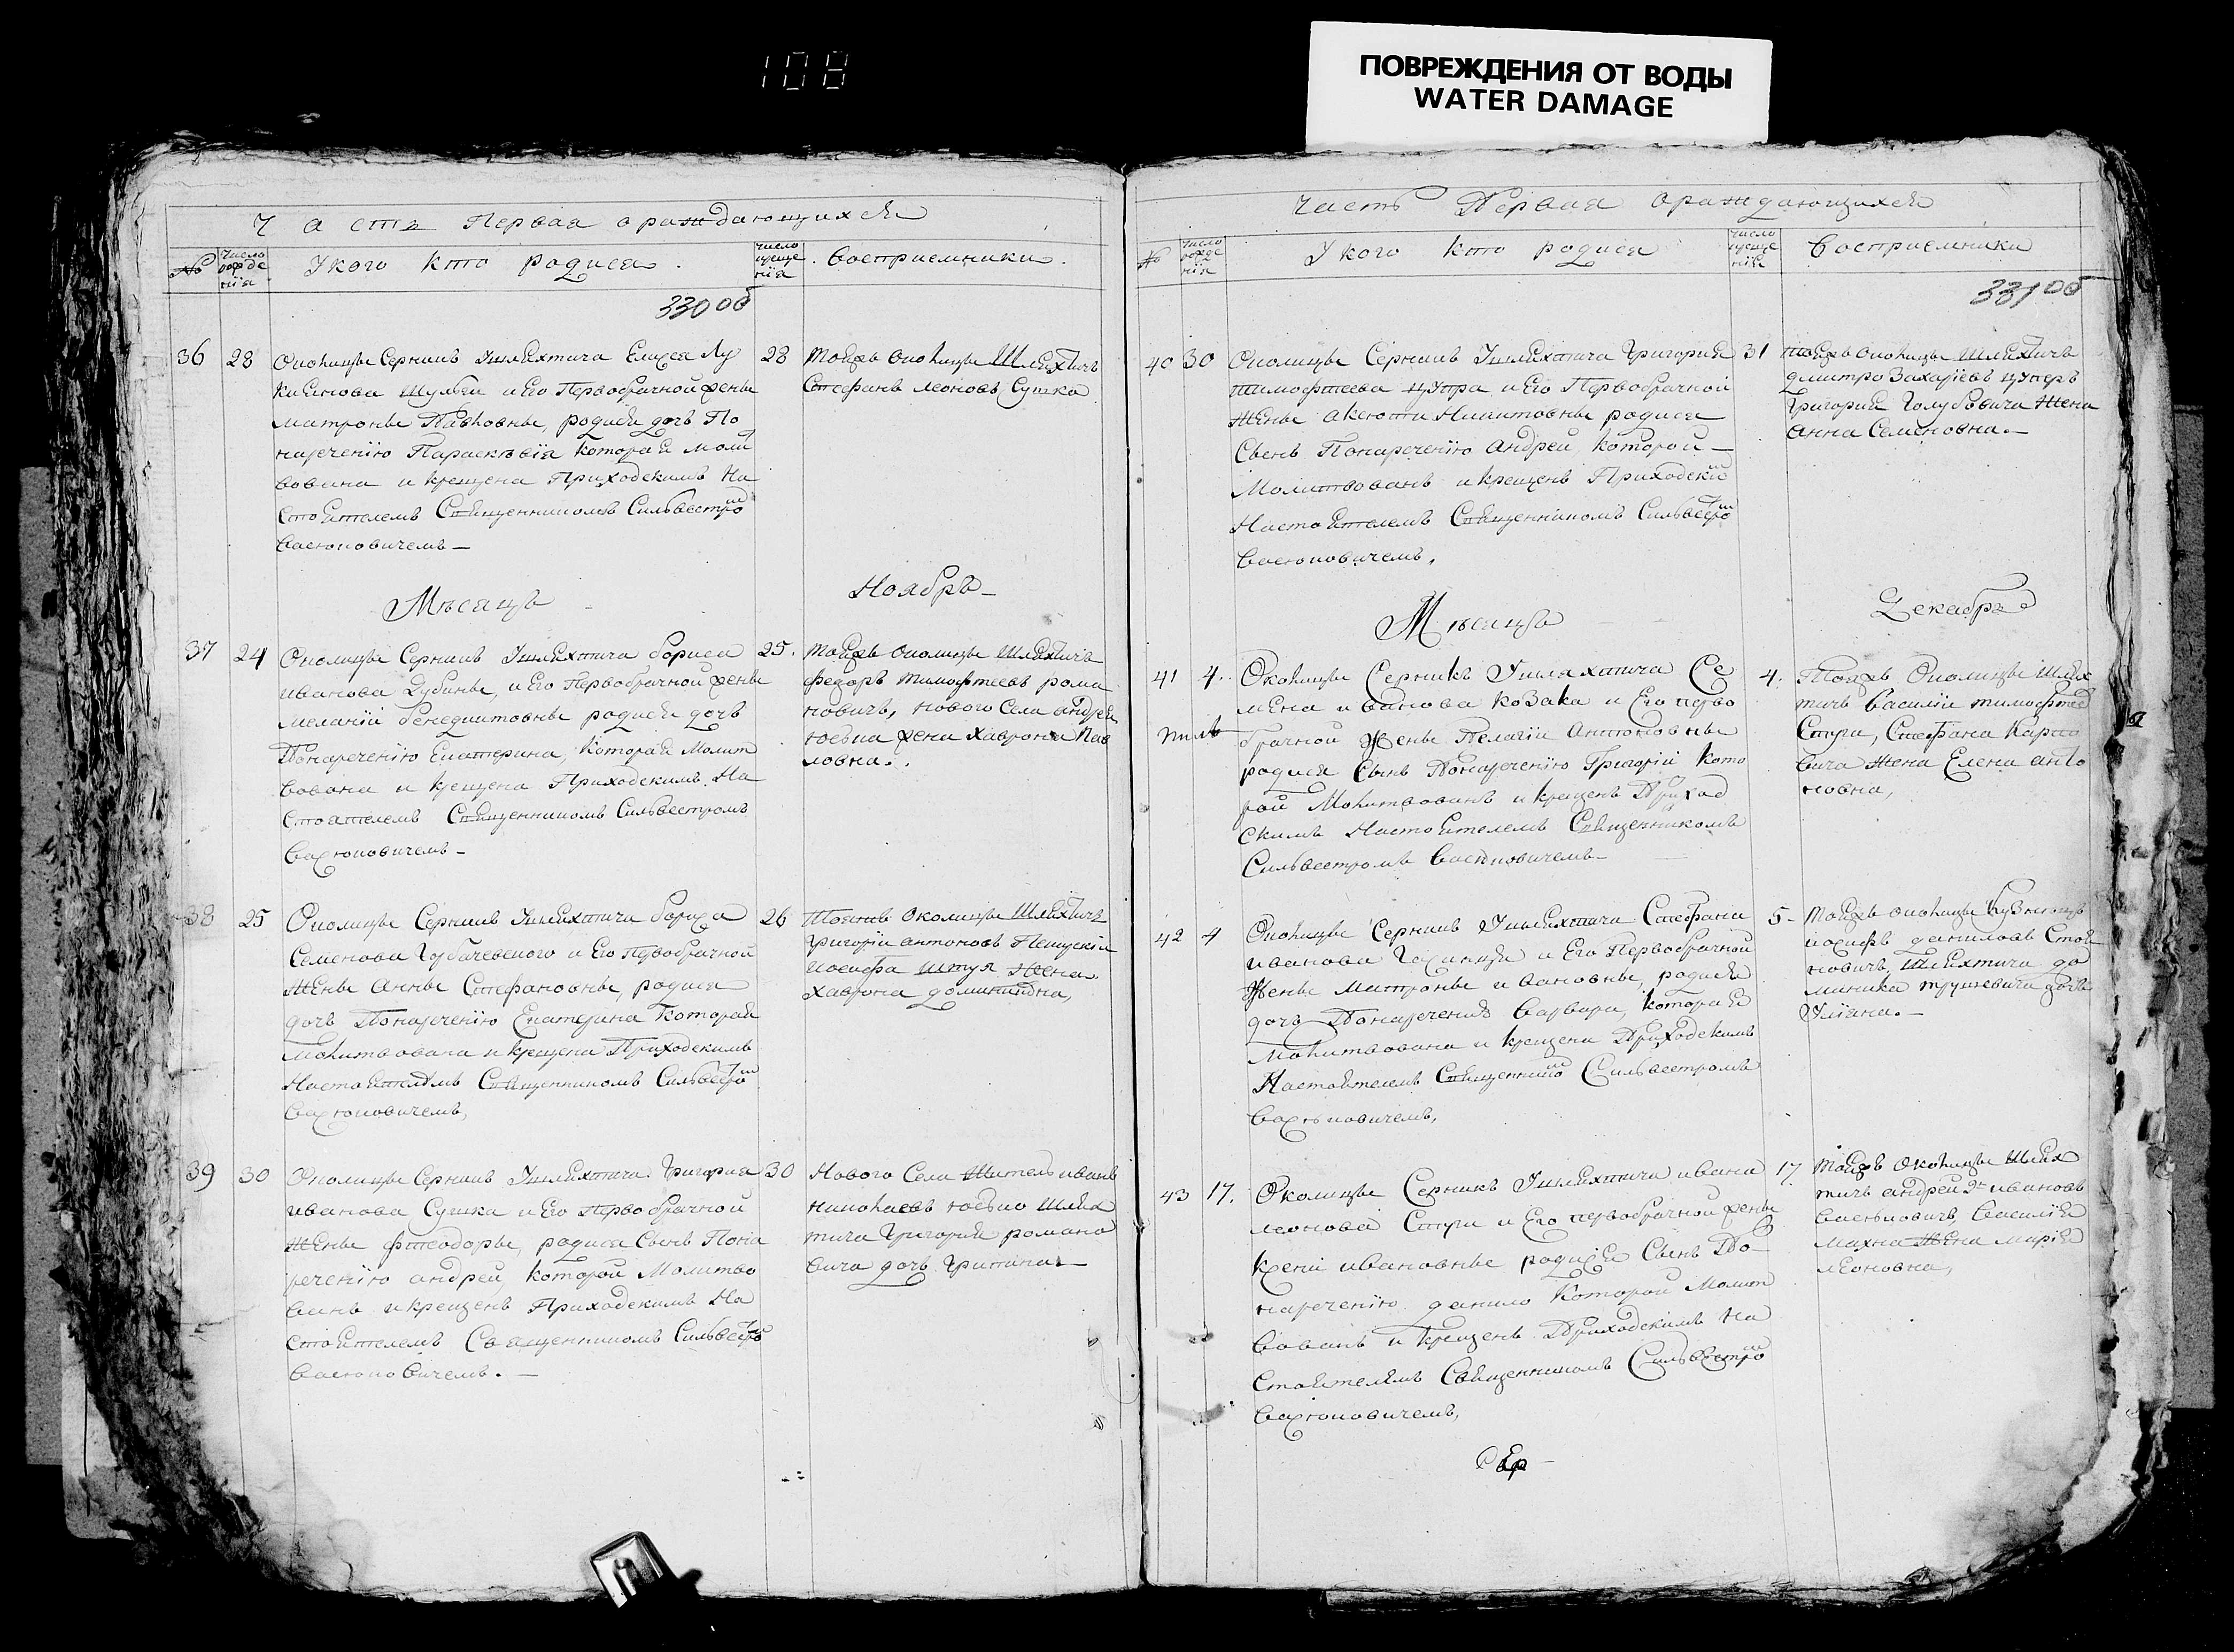 108
ПОВРЕЖДЕНИЯ ОТ ВОДЫ
WATER DAMAGE
Часть Первая ораждающихся
№ Число рожденія Укого кто родися. число крещенія Восприемники.
330 об
36 28 Околицы Серникъ Ушляхтича Елисея Лу
кианова Шульги и Его Первобрачной жены
матроны Павловны, родися дочь По
наречению Параскевія которая моли
вована и крещена Приходскимъ На
стоятелемъ Священникомъ Сильвестро
Васюковичемъ
28 тояжъ околицы Шляхтичъ
Стефанъ Леоновъ Сушка
Мѣсяцъ Ноябръ
37 24 Околицы Серникъ Ушляхтича бориса
иванова Дубины, и Его Первобрачной жены
мелании бенедиктовны родися дочь
Понаречению Екатерина, которая Молит
вована и крещена Приходскимъ На
стоятелемъ Священникомъ Сильвестромъ
Васюковичемъ
25. тояжъ околицы Шляхтичъ
федоръ тимофтеевъ рома
новичъ, нового Села андрея
жена хаврония Пав
ловна.
38 25 Околицы Серникъ Ушляхтича бориса
Семенова и Его Первобрачной
женьы Анны Стефановны, родися
дочь Понаречению Екатерина которая
Молитвована и крещена Приходскимъ
Настоятелемъ Священникомъ Сильвестро
Васюковичемъ,
26 Тояжъ Околицы Шляхтичъ
григорій антоновъ
иосифа жена
хаврона
39 30 Околицы Серникъ Ушляхтича Григория
иванова Сушка и Его Первобрачной
женьы фтеодоры, родися Сынъ Пона
речению андрей, которой Молитво
ванъ и крещенъ Приходскимъ На
стоятелемъ Священникомъ Сильвестро
Васюковичемъ.
30 Нового Села Житель иванъ
николаевъ Шлях
тича Григория романо
вича дочь
Часть Первая ораждающихся
№ число рожденія Укого кто родися число крещенія Восприемники
331 об
40 30 Околицы Серникъ Ушляхтича Григория
тимофтеева цупра и Его Первобрачной
Женьы Никитовны родися
Сынъ Понаречению Андрей которой
Молитвованъ и крещенъ Приходски
Настоятелемъ Священникомъ Сильвестро
Васюковичемъ,
31 тояжъ околицы Шляхтичъ
дмитро Захариевъ цуперъ
григория Голубовича Жена
Анна Семеновна.
Мѣсяцъ Декабръ
41 4. Околицы Серникъ Ушляхтича Се
мена иванова Козака и Его перво
брачной Жены Пелагіи Антоновны
родися Сынъ Понаречению Григорій кото
рой Молитвованъ и крещенъ Приход
скимъ Настоятелемъ Священникомъ
Сильвестромъ Васюковичемъ
4. Тояжъ Околицы Шлях
тичъ Василій тимофтее
Стефана Карпо
вича жена Елена анто
новна,
42 4 Околицы Серникъ Ушляхтича Стефана
иванова и Его Первобрачной
Жены Матроны ивановны, родися
дочь Понаречению Варвара, которая
Молитвована и крещена Приходскимъ
Настоятелемъ Священнико Сильвестромъ
Васюковичемъ,
5 тояжъ околицы
иосифъ даниловъ Стой
новичъ, Шляхтича до
миника дочь
Уліяна.
43 17. Околицы Серникъ Ушляхтича ивана
леонова и Его первобрачной жены
ксении ивановны родися Сынъ По
наречению данило Которой Молит
вованъ и крещенъ Приходскимъ На
стоятелемъ Священникомъ Сильвестро
Васюковичемъ,
17. Тояжъ Околицы Шлях
тичъ андрей ивановъ
Васюковичъ, Василія
Махна жена Марія
леоновна,